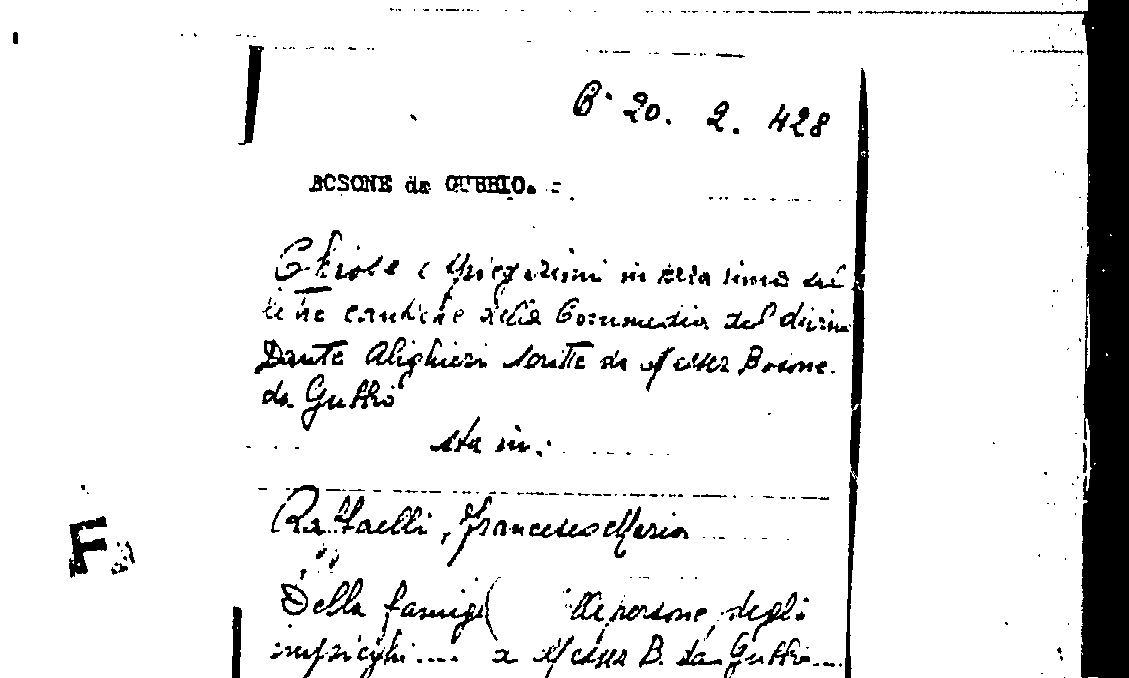 6. 20. 2. 428
BOSONE da GUBBIO.-
Chiose e spiegazioni in terza rima sul
le tre cantiche della Commedia del divino
Dante Alighieri scritte da Messer Bosone
da Gubbio
sta in:
Raffaelli, Francesco Maria
Della famigl delle persone, degli
impieghi.... a Messer B. da Gubbio....
F